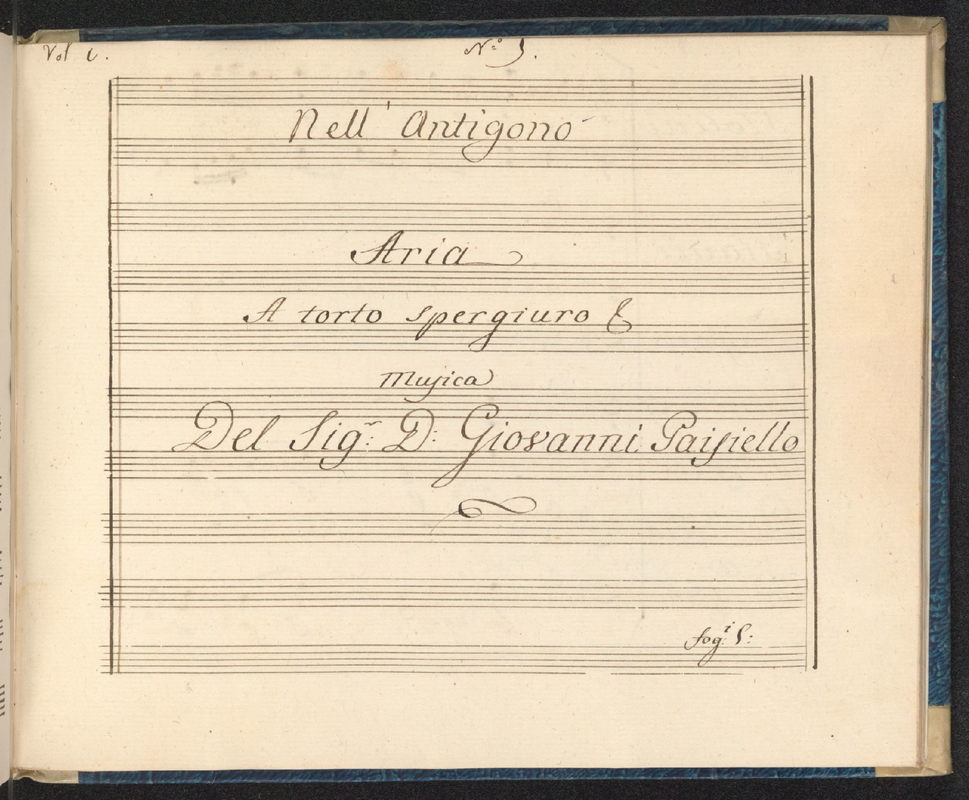 Vol i.
N.º 5.
Nell' Antigono
Aria
A torto spergiuro &
Musica
Del Sig.r D: Giovanni Paisiello
fog.i 5: